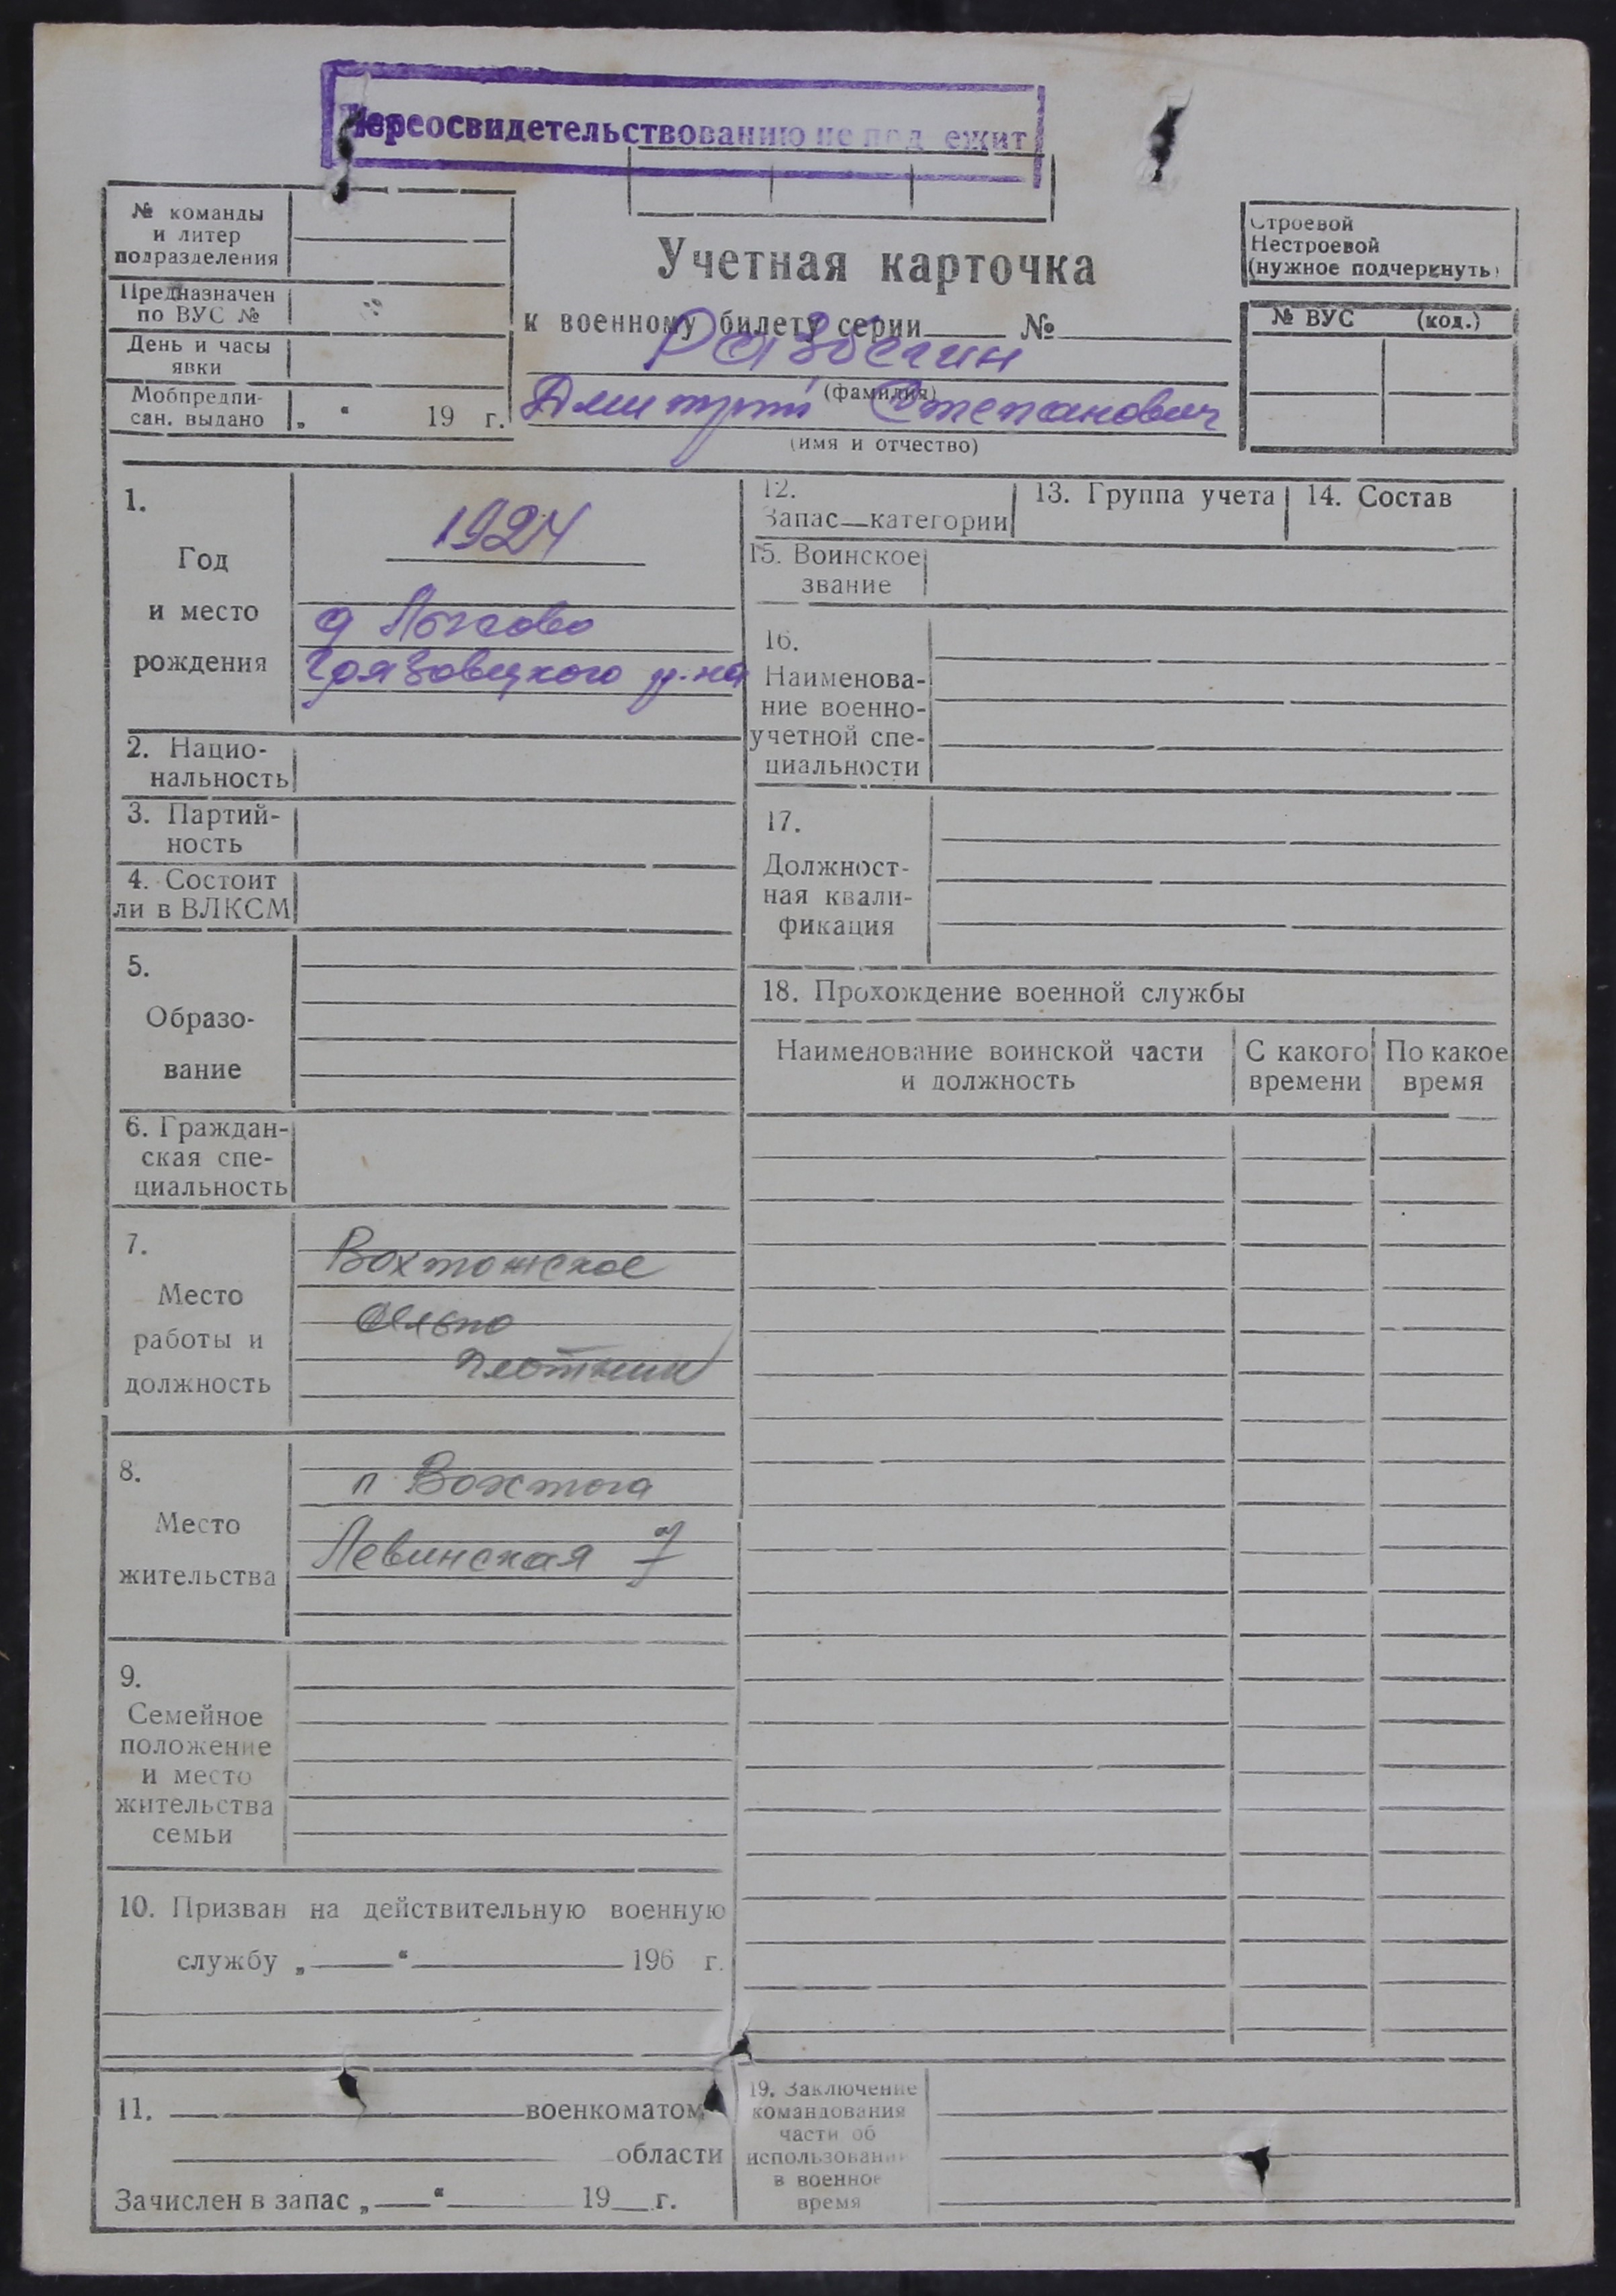 Переосвидетельствованию не под ежит
№ команды
и литер
подразделения
Предназначен
по ВУС №
День и часы
явки
Мобпредпи-
сан. выдано „ “ 19 г.
Учетная карточка
к военному билету серии №
(фамилия)
Дмитрий Степанович
(имя и отчество)
Строевой
Нестроевой
(нужное подчеркнуть)
№ ВУС (код.)
1.
Год
и место
рождения
1924
д
Грязовецкого р-на
2. Нацио-
нальность
3. Партий-
ность
4. Состоит
ли в ВЛКСМ
5.
Образо-
вание
6. Граждан-
ская спе-
циальность
7.
Место
работы и
должность
Вохтожское
сельпо
плотник
8.
Место
жительства
п Вохтога
Левинская 7
9.
Семейное
положение
и место
жительства
семьи
10. Призван на действительную военную
службу „ “ 196 г.
11. военкоматом
области
Зачислен в запас „ “ 19 г.
12.
Запас—категории
13. Группа учета
14. Состав
15. Воинское
звание
16.
Наименова-
ние военно-
учетной спе-
циальности
17.
Должност-
ная квали-
фикация
18. Прохождение военной службы
Наименование воинской части
и должность
С какого
времени
По какое
время
19. Заключение
командования
части об
использовании
в военное
время